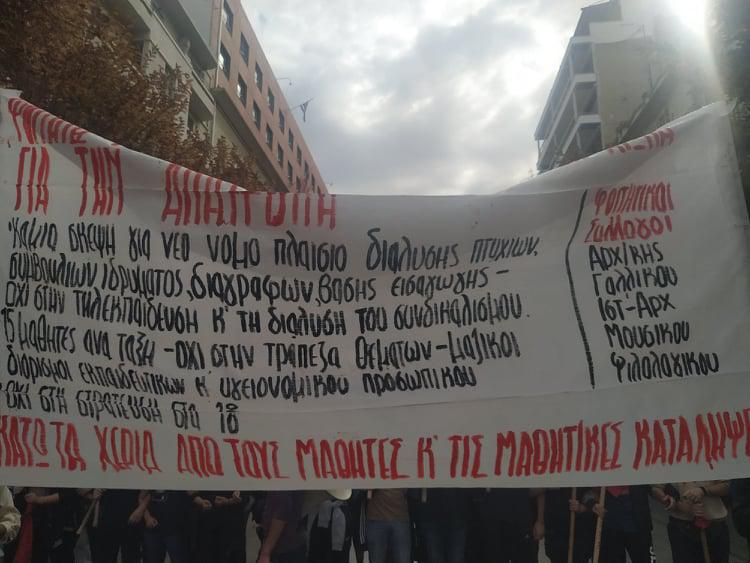 ΓΙΑ ΤΗΝ
Καμια σκεψη για νεο νομο πλαισιο διαλυσης πτυχιων,
συμβουλιων ιδρυματος, διαγραφων, βασης εισαγωγης -
οχι στην τηλεκπαιδευση κ' τη διαλυση του συνδικαλισμου.
15 μαθητες ανα ταξη - οχι στην τραπεζα θεματων - μαζικοι
διορισμοι εκπαιδευτικων κ' υγειονομικου προσωπικου
οχι στη στρατευση στα 18
ΚΑΤΩ ΤΑ ΧΕΡΙΑ ΑΠΟ ΤΟΥΣ ΜΑΘΗΤΕΣ Κ' ΤΙΣ ΜΑΘΗΤΙΚΕΣ ΚΑΤΑΛΗΨΕ
ΦΟΙΤΗΤΙΚΟΙ
ΣΥΛΛΟΓΟΙ
ΑΡΧ/ΚΗΣ
ΓΑΛΛΙΚΟΥ
ΙΣΤ-ΑΡΧ
ΜΟΥΣΙΚΟΥ
ΦΙΛΟΛΟΓΙΚΟΥ